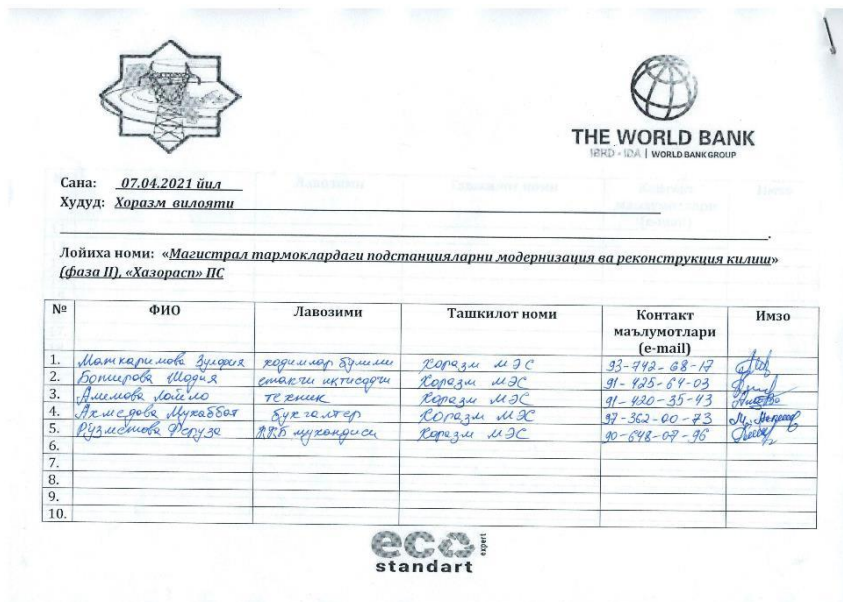 THE WORLD BANK
IBRD - IDA | WORLD BANK GROUP
Сана: 07.04.2021 йил
Худуд: Хоразм вилояти
Лойиха номи: «Магистрал тармоклардаги подстанцияларни модернизация ва реконструкция килиш»
(фаза II), «Хазорасп» ПС
№ ФИО Лавозими Ташкилот номи Контакт маълумотлари (e-mail) Имзо
1. Маткаримова Зулфия ходимлар булими Хоразм МЭС 93-742-68-17
2. Ботирова етакчи иктисодчи Хоразм МЭС 91-425-64-03
3. Алимова техник Хоразм МЭС 91-420-35-43
4. Ахмедова Мухаббат бухгалтер Хоразм МЭС 97-362-00-73
5. Рузметова Феруза мухандиси Хоразм МЭС 90-648-07-96
6.
7.
8.
9.
10.
eco expert
standart